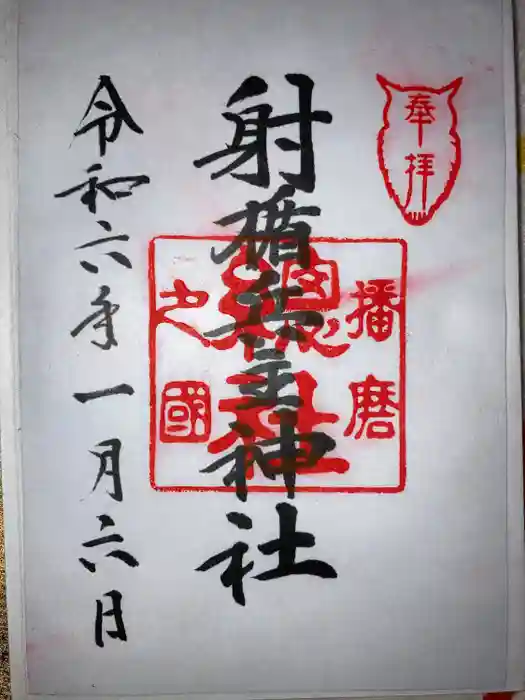 奉拝
播磨
總社
之國
射楯兵主神社
令和六年一月六日